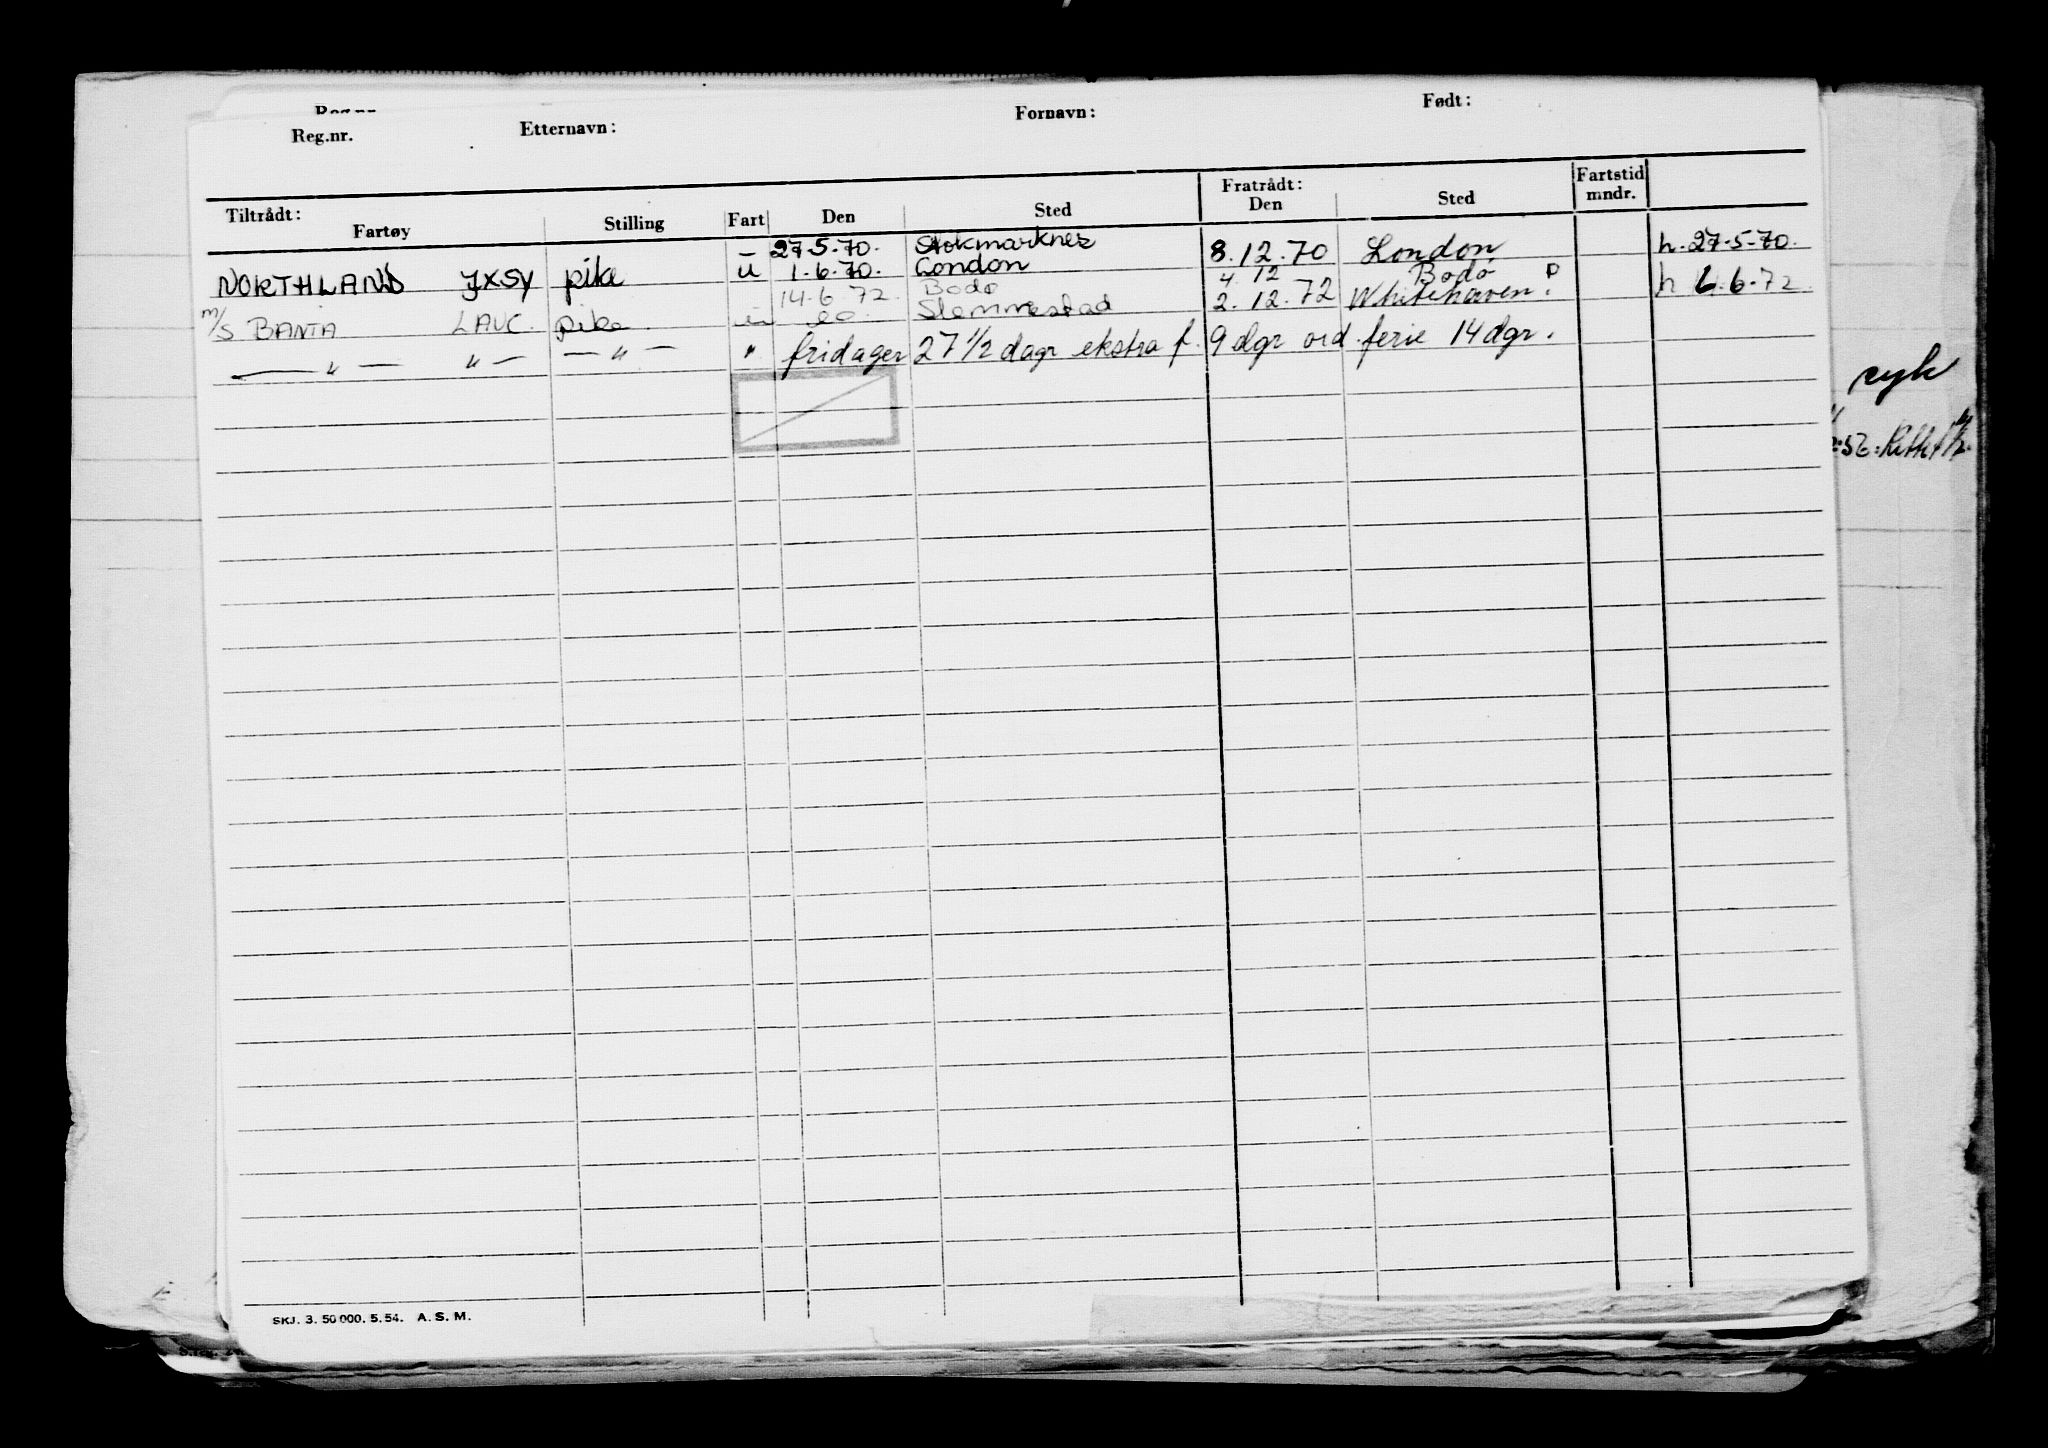 Reg.nr.
Reg.nr. Etternavn: Fornavn: Født:
Tiltrådt: Fratrådt: Fartstid
Fartøy Stilling Fart Den Sted Den Sted mndr.
– 27.5.70. Stokmarknes
NORTHLAND JXSY pike u 1.6.70. London 8.12.70 London h. 27.5.70.
14.6.72. Bodø 4.12 Bodø P
m/s BANTA LAUC. pike Slemmestad 2.12.72 Whitehaven. h 6.72.
— " — " — — " — " fridager 27 1/2 dagr ekstra f. 9 dgr ord. ferie 14 dgr.
SKJ. 3. 50 000. 5. 54. A. S. M.